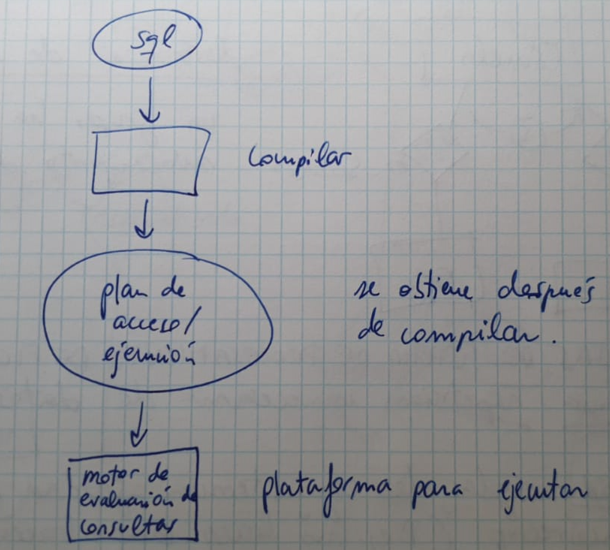 sql
compilar
plan de
acceso/
ejecución
se obtiene después
de compilar.
motor de
evaluación de
consultas
plataforma para ejecutar